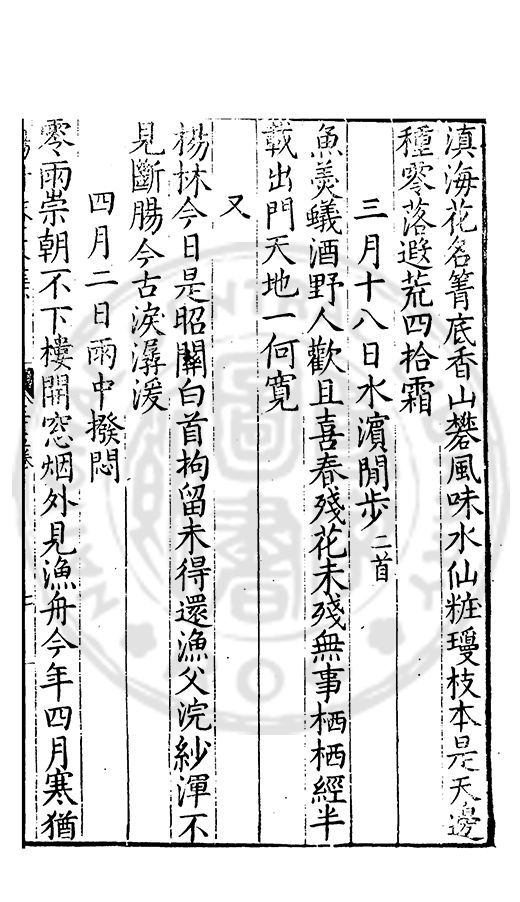 滇海花名箐底香山礬風味水仙粧瓊枝本是天邊
種零落遐荒四拾霜
三月十八日水濱閒步二首
魚羮蟻酒野人歡且喜春殘花未殘無事栖栖經半
載出門天地一何寬
又
楊林今日是昭關白首拘留未得還漁父浣紗渾不
見斷腸今古淚潺湲
四月二日雨中撥悶
零雨崇朝不下樓開窓烟外見漁舟今年四月寒猶